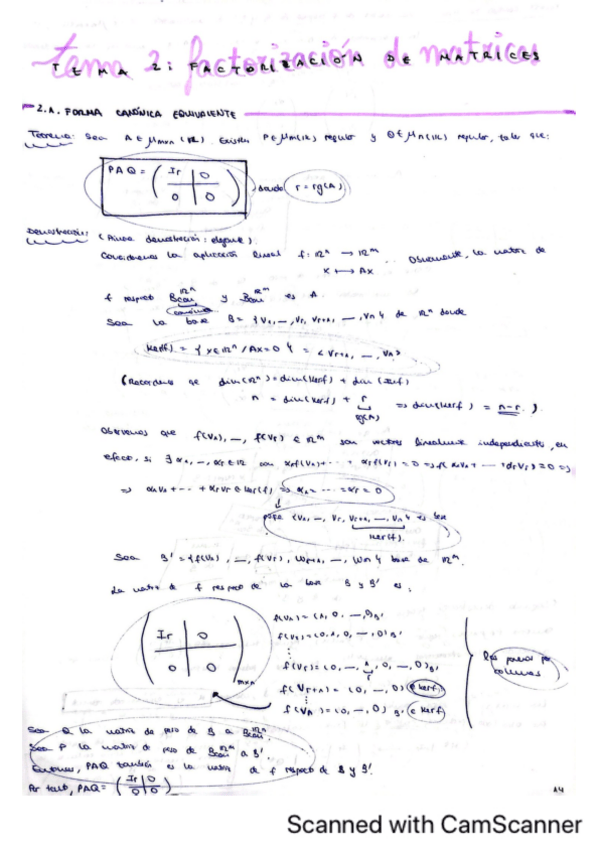 Tema 2: factorización de matrices
TEMA 2: FACTORIZACIÓN DE MATRICES
2.1. FORMA CANÓNICA EQUIVALENTE
Teorema: Sea A ∈ Mmxn (IR). Existen P ∈ Mm(IR) regular y Q ∈ Mn(IR) regular, tales que:
PAQ = ( Ir 0 / 0 0 ) donde r = rg(A)
Demostración: (Primera demostración: elegante).
Consideremos la aplicación lineal f: IRⁿ → IRᵐ. Obviamente, la matriz de
x ↦ Ax
f respecto Bcan IRⁿ y Bcan IRᵐ es A.
canónica
Sea la base B = {V1, —, Vr, Vr+1, —, Vn} de IRⁿ donde
Ker(f) = {x ∈ IRⁿ / Ax = 0} = <Vr+1, —, Vn>
(Recordemos que dim(IRⁿ) = dim(Kerf) + dim(Imf)
n = dim(Kerf) + r ⇒ dim(Kerf) = n-r.)
rg(A)
Observemos que f(V1), —, f(Vr) ∈ IRᵐ son vectores linealmente independientes, en
efecto, si ∃ α1, —, αr ∈ IR con α1f(V1) + ··· + αrf(Vr) = 0 ⇒ f(α1V1 + ··· αrVr) = 0 ⇒
⇒ α1V1 + ··· + αrVr ∈ Ker(f) ⇒ α1 = ··· = αr = 0
{V1, —, Vr, Vr+1, —, Vn} es base
Ker(f).
Sea B' = {f(V1), —, f(Vr), Wr+1, —, Wm} base de IRᵐ.
La matriz de f respecto de la base B y B' es:
( Ir 0 / 0 0 ) mxn
f(V1) = (1, 0, ··· —, 0)B'
f(V2) = (0, 1, 0, —, 0)B'
⋮
f(Vr) = (0, —, 1, 0, —, 0)B'
r
f(Vr+1) = (0, —, 0) ∈ Kerf
⋮
f(Vn) = (0, —, 0)B' ∈ Kerf
por
columnas
Sea Q la matriz de paso de B a Bcan IRⁿ.
Sea P la matriz de paso de Bcan IRᵐ a B'.
Entonces, PAQ también es la matriz de f respecto de B y B'.
Por tanto, PAQ = ( Ir 0 / 0 0 )
Scanned with CamScanner